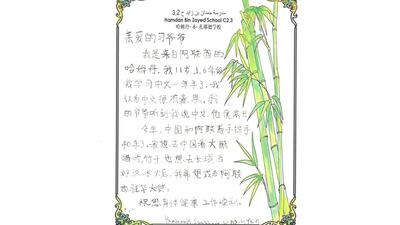 مدرسة حمدان بن زايد ح 3,2
Hamdan Bin Zayed School C2.3
哈姆丹·本·扎耶德学校
亲爱的习爷爷
我是来自阿联酋的
哈姆丹,我11岁,上6年级
我学习中文一年半了。我
认为中文很有意思,我
的爷爷听到我说中文,他很高兴
今年,中国和阿联酋手拉手
40年了,我想去中国看大熊
猫吃竹子也想去长城当
好汉长大后,我希望成为阿联
酋驻华大使。
祝您身体健康 工作顺利。